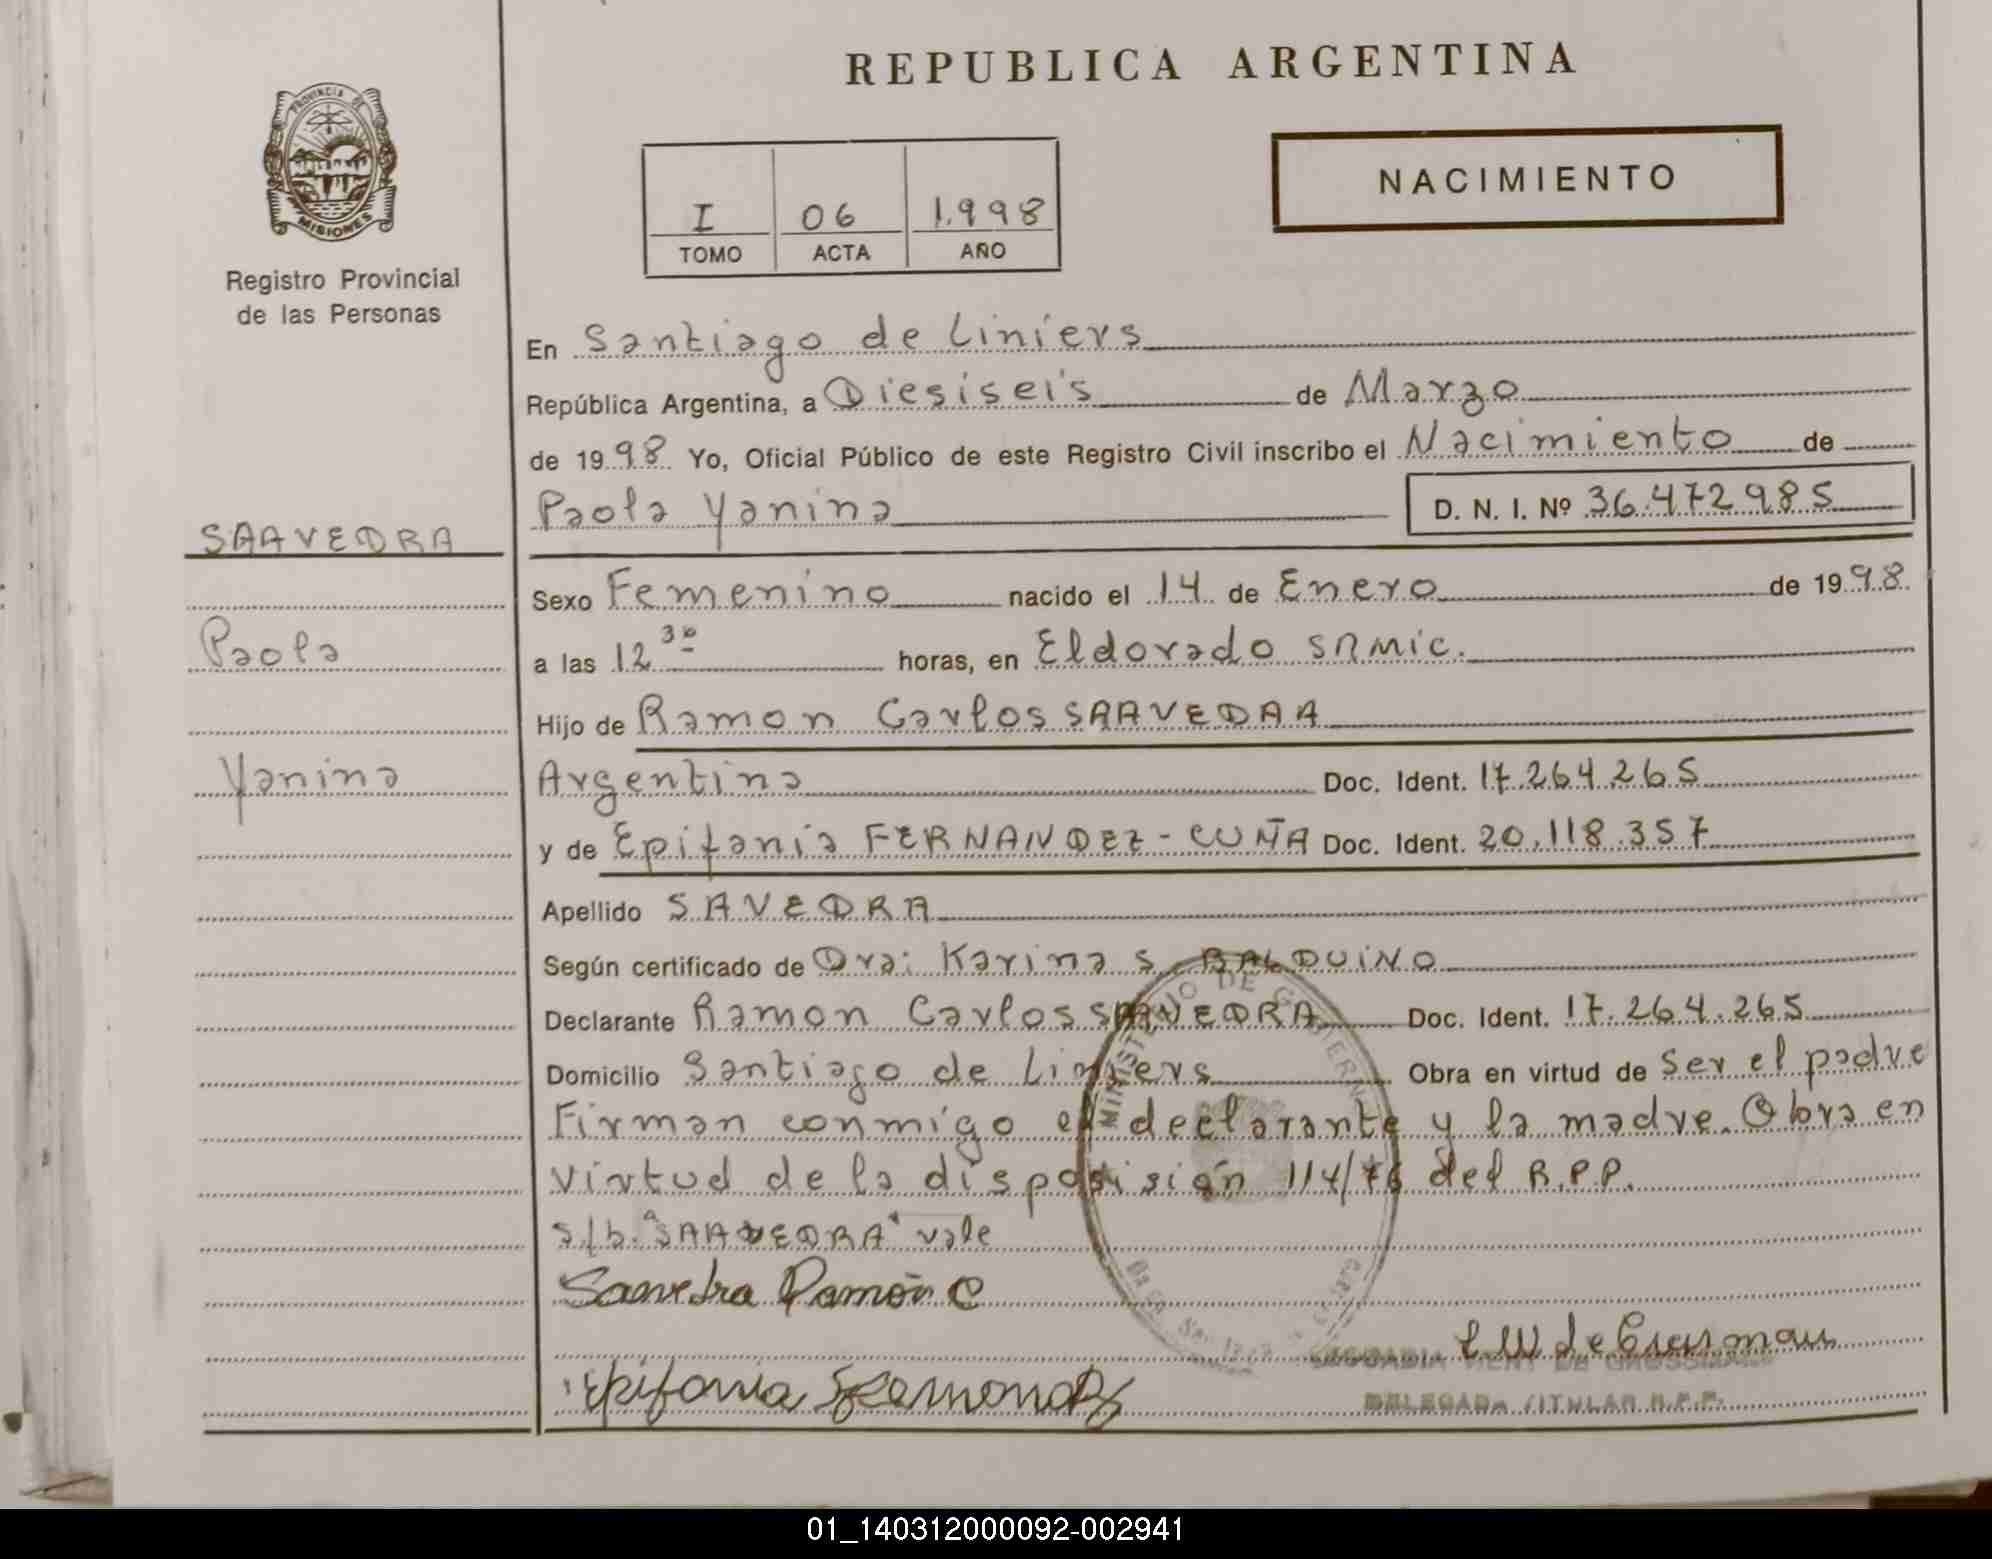 REPUBLICA ARGENTINA
PROVINCIA DE
MISIONES
Registro Provincial
de las Personas
I 06 1.998
TOMO ACTA AÑO
NACIMIENTO
En Santiago de Liniers
República Argentina, a Diesiseis de Marzo
de 1998 Yo, Oficial Público de este Registro Civil inscribo el Nacimiento de
Paola Yanina D. N. I. Nº 36.472.985
SAAVEDRA
Paola
Yanina
Sexo Femenino nacido el 14 de Enero de 1998
a las 12 30 horas, en Eldorado SAMIC.
Hijo de Ramon Carlos SAAVEDRA
Argentina Doc. Ident. 17.264.265
y de Epifania FERNANDEZ - CUÑA Doc. Ident. 20.118.357
Apellido SAVEDRA
Según certificado de Dra: Karina S. BALDUINO
Declarante Ramon Carlos SAAVEDRA Doc. Ident. 17.264.265
Domicilio Santiago de Liniers Obra en virtud de Ser el padre
Firman conmigo el declarante y la madre. Obra en
virtud de la disposisión 114/76 del R.P.P.
s/b. "SAAVEDRA" vale
Saavedra Ramón C
Epifania Fernandez
MINISTERIO DE GOBIERNO
DELEGADA TITULAR R.P.P.
01_140312000092-002941